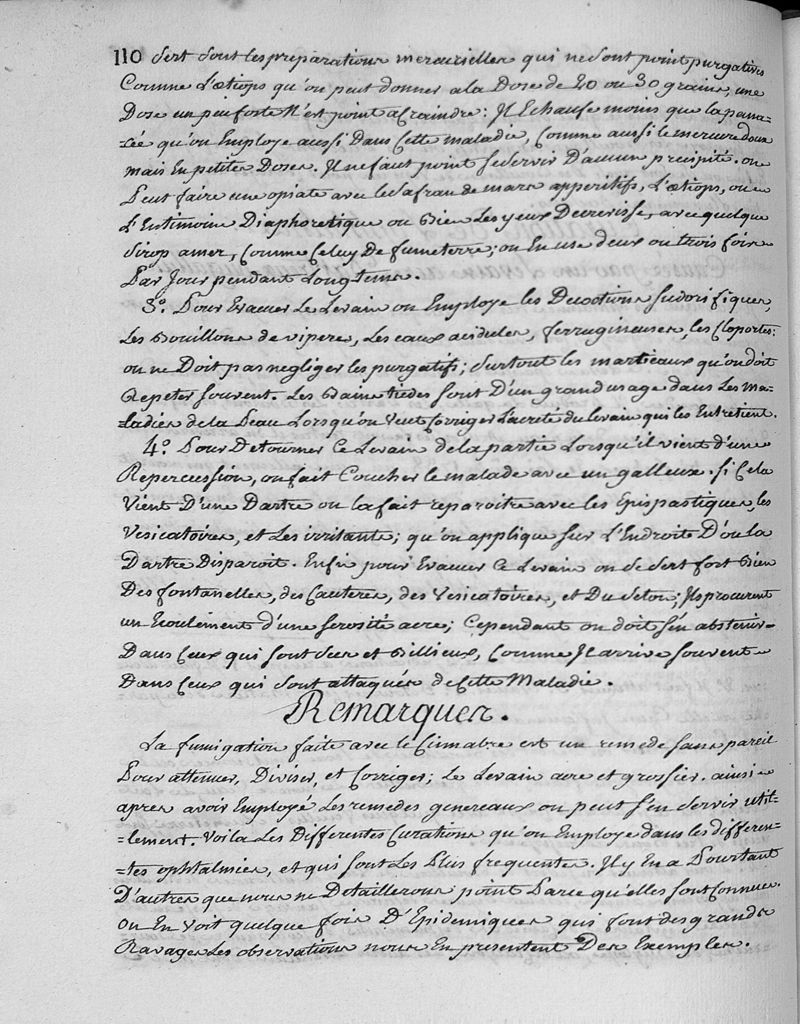 110 sert sont les preparations mercurielles qui ne sont point purgatives
Comme L'œtiops qu'on peut donner a la Dose de 20 ou 30 grains, une
Dose un peu forte N'est point a Craindre: Il Echaufe moins que la pana=
=cée qu'on Employe aussi Dans Cette maladie, Comme aussi le mercure doux
mais En petites Doses. Il ne faut point se servir D'aucun precipité. on
Peut faire une opiate avec le Safran de mars apperitifs, L'œtiops, ou
L'Entimoine Diaphoretique ou Bien Les yeux Decrevisse, avec quelque
Sirop amer, Comme Celuy De fumeterre; on En use deux ou trois fois
Par Jour pendant Long-tems.
3.° Pour Evacuer Le Levain on Employe les Decoctions Sudorifiques,
Les Bouillons de vipere, Les eaux acidules, ferrugineuses, les Cloportes:
on ne Doit pas negliger les purgatifs; surtout les martieaux qu'on doit
Repeter souvent. Les Bains tiedes sont D'un grand usage dans Les ma=
=ladies de la Peau Lorsqu'on veut Corriger L'acreté du levain qui les Entretient.
4.° Pour Detourner Ce Levain de la partie Lorsqu'il vient d'une
Repercession, on fait Coucher le malade avec un galleux. si Cela
Vient D'une Dartre on la fait reparoitre avec les Epispastiques, les
Vesicatoires, et Les irritants; qu'on applique sur L'Endroit D'ou la
Dartre Disparoit. Enfin pour Evacuer Ce Levain on se sert fort Bien
Des fontanelles, des Cauteres, des Vesicatoires, et Du Seton; Ils procurent
un Ecoulement d'une serosité acre; Cependant on doit s'en abstenir
Dans Ceux qui sont secs et Billieux, Comme Il arrive souvent
Dans Ceux qui sont attaqués de Cette Maladie.
Remarques.
La fumigation faite avec le Cinnabre est un remede sans pareil
Pour attenuer, Diviser, et Corriger; Le Levain acre et grossier. ainsi
apres avoir Employé Les remedes genereaux on peut s'en servir util=
=lement. Voila Les Differentes Curations qu'on Employe dans les differen=
=tes ophtalmies, et qui sont Les Plus frequentes. Il y En a Pourtant
D'autres que nous ne Detaillerons point Parce qu'elles sont Connues.
On En Voit quelque fois D'Epidemiques qui font des grands
Ravages Les observations nous En presentent Des Exemples.